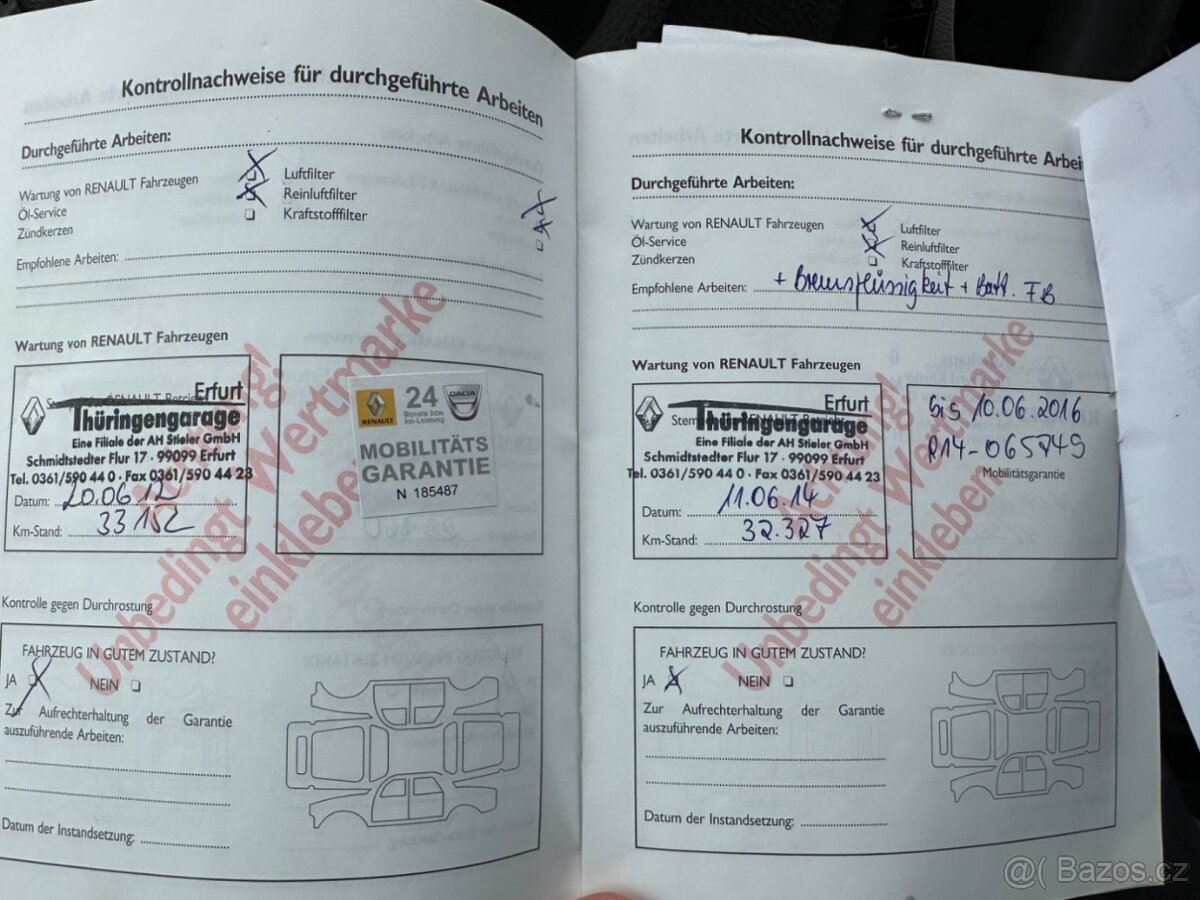 Kontrollnachweise für durchgeführte Arbeiten
Durchgeführte Arbeiten:
Wartung von RENAULT Fahrzeugen
Öl-Service
Zündkerzen
Luftfilter
Reinluftfilter
Kraftstofffilter
Empfohlene Arbeiten:
Wartung von RENAULT Fahrzeugen
Erfurt
Thüringengarage
Eine Filiale der AH Stieler GmbH
Schmidtstedter Flur 17 · 99099 Erfurt
Tel. 0361/590 44 0 · Fax 0361/590 44 23
Datum: 20.06 12
Km-Stand: 33 152
RENAULT
24
Monate bzw.
km-Leistung
DACIA
MOBILITÄTS
GARANTIE
N 185487
Unbedingt Wertmarke
einkleben!
Kontrolle gegen Durchrostung
FAHRZEUG IN GUTEM ZUSTAND?
JA NEIN
Zur Aufrechterhaltung der Garantie
auszuführende Arbeiten:
Datum der Instandsetzung:
Kontrollnachweise für durchgeführte Arbei
Durchgeführte Arbeiten:
Wartung von RENAULT Fahrzeugen
Öl-Service
Zündkerzen
Luftfilter
Reinluftfilter
Kraftstofffilter
Empfohlene Arbeiten: + Bremsflüssigkeit + Batt. FB
Wartung von RENAULT Fahrzeugen
Erfurt
Thüringengarage
Eine Filiale der AH Stieler GmbH
Schmidtstedter Flur 17 · 99099 Erfurt
Tel. 0361/590 44 0 · Fax 0361/590 44 23
Datum: 11.06.14
Km-Stand: 32.327
bis 10.06.2016
R14-065849
Mobilitätsgarantie
Unbedingt Wertmarke
einkleben!
Kontrolle gegen Durchrostung
FAHRZEUG IN GUTEM ZUSTAND?
JA NEIN
Zur Aufrechterhaltung der Garantie
auszuführende Arbeiten:
Datum der Instandsetzung:
@( Bazos.cz